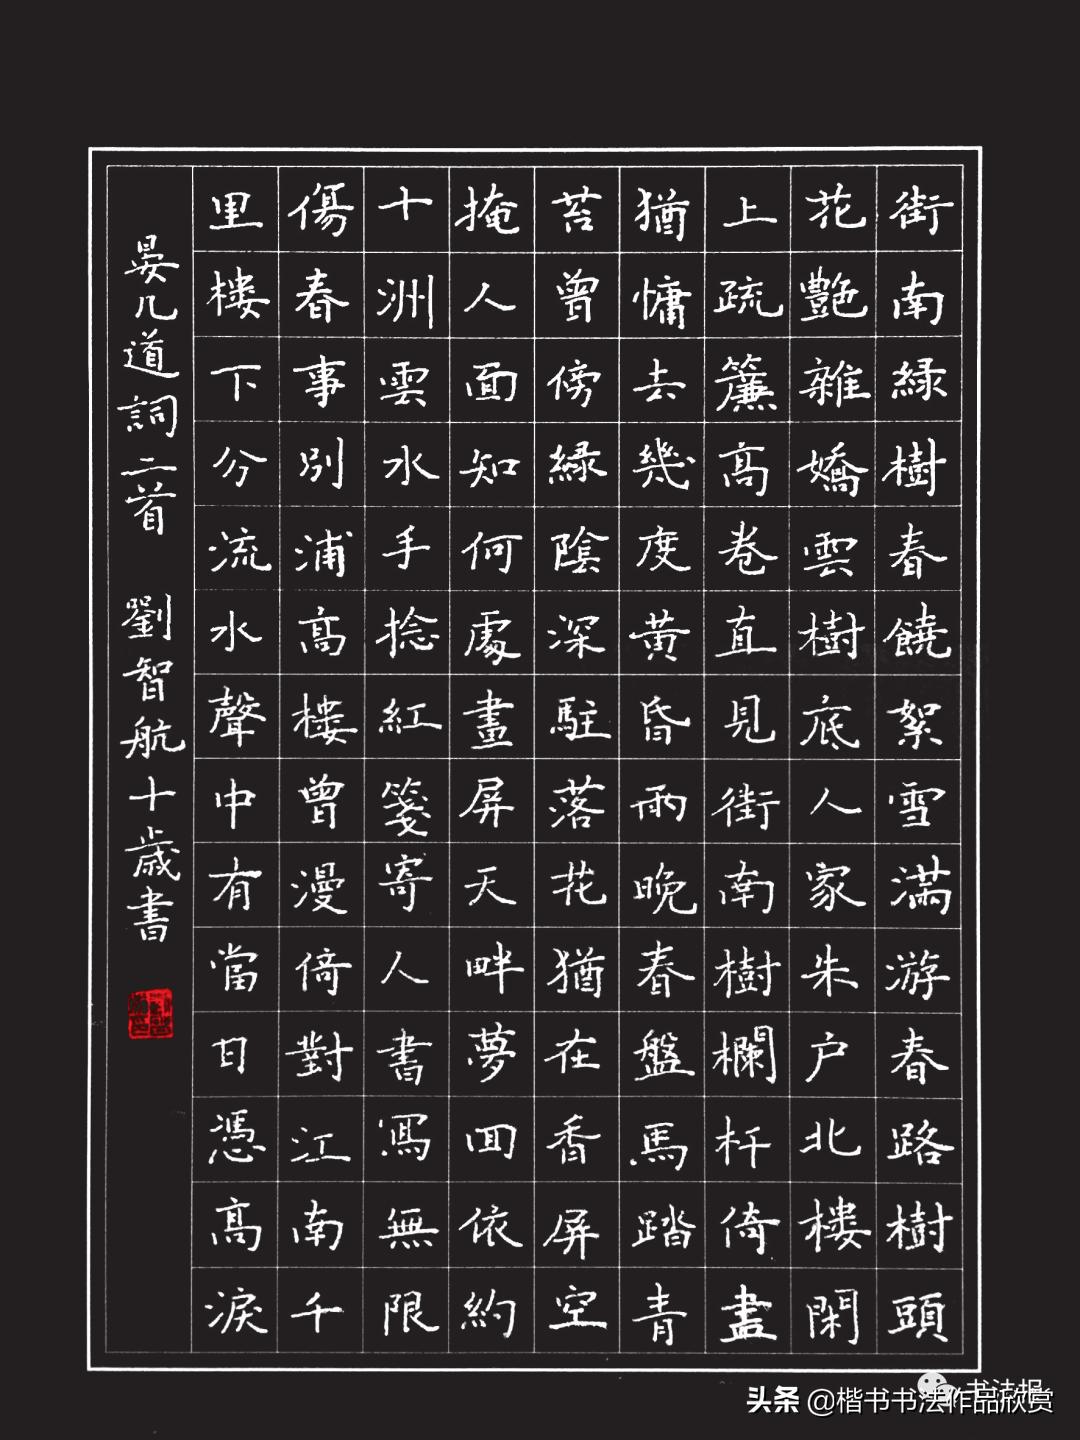 街南緑樹春饒絮雪滿游春路樹頭
花艷雜嬌雲樹底人家朱户北樓閑
上疏簾高卷直見街南樹欄杆倚盡
猶慵去幾度黄昏雨晚春盤馬踏青
苔曾傍緑陰深駐落花猶在香屏空
掩人面知何處畫屏天畔夢回依約
十洲雲水手捻紅箋寄人書寫無限
傷春事别浦高樓曾漫倚對江南千
里樓下分流水聲中有當日憑高淚
晏几道詞二首 劉智航十歲書
书法报
头条 @楷书书法作品欣赏